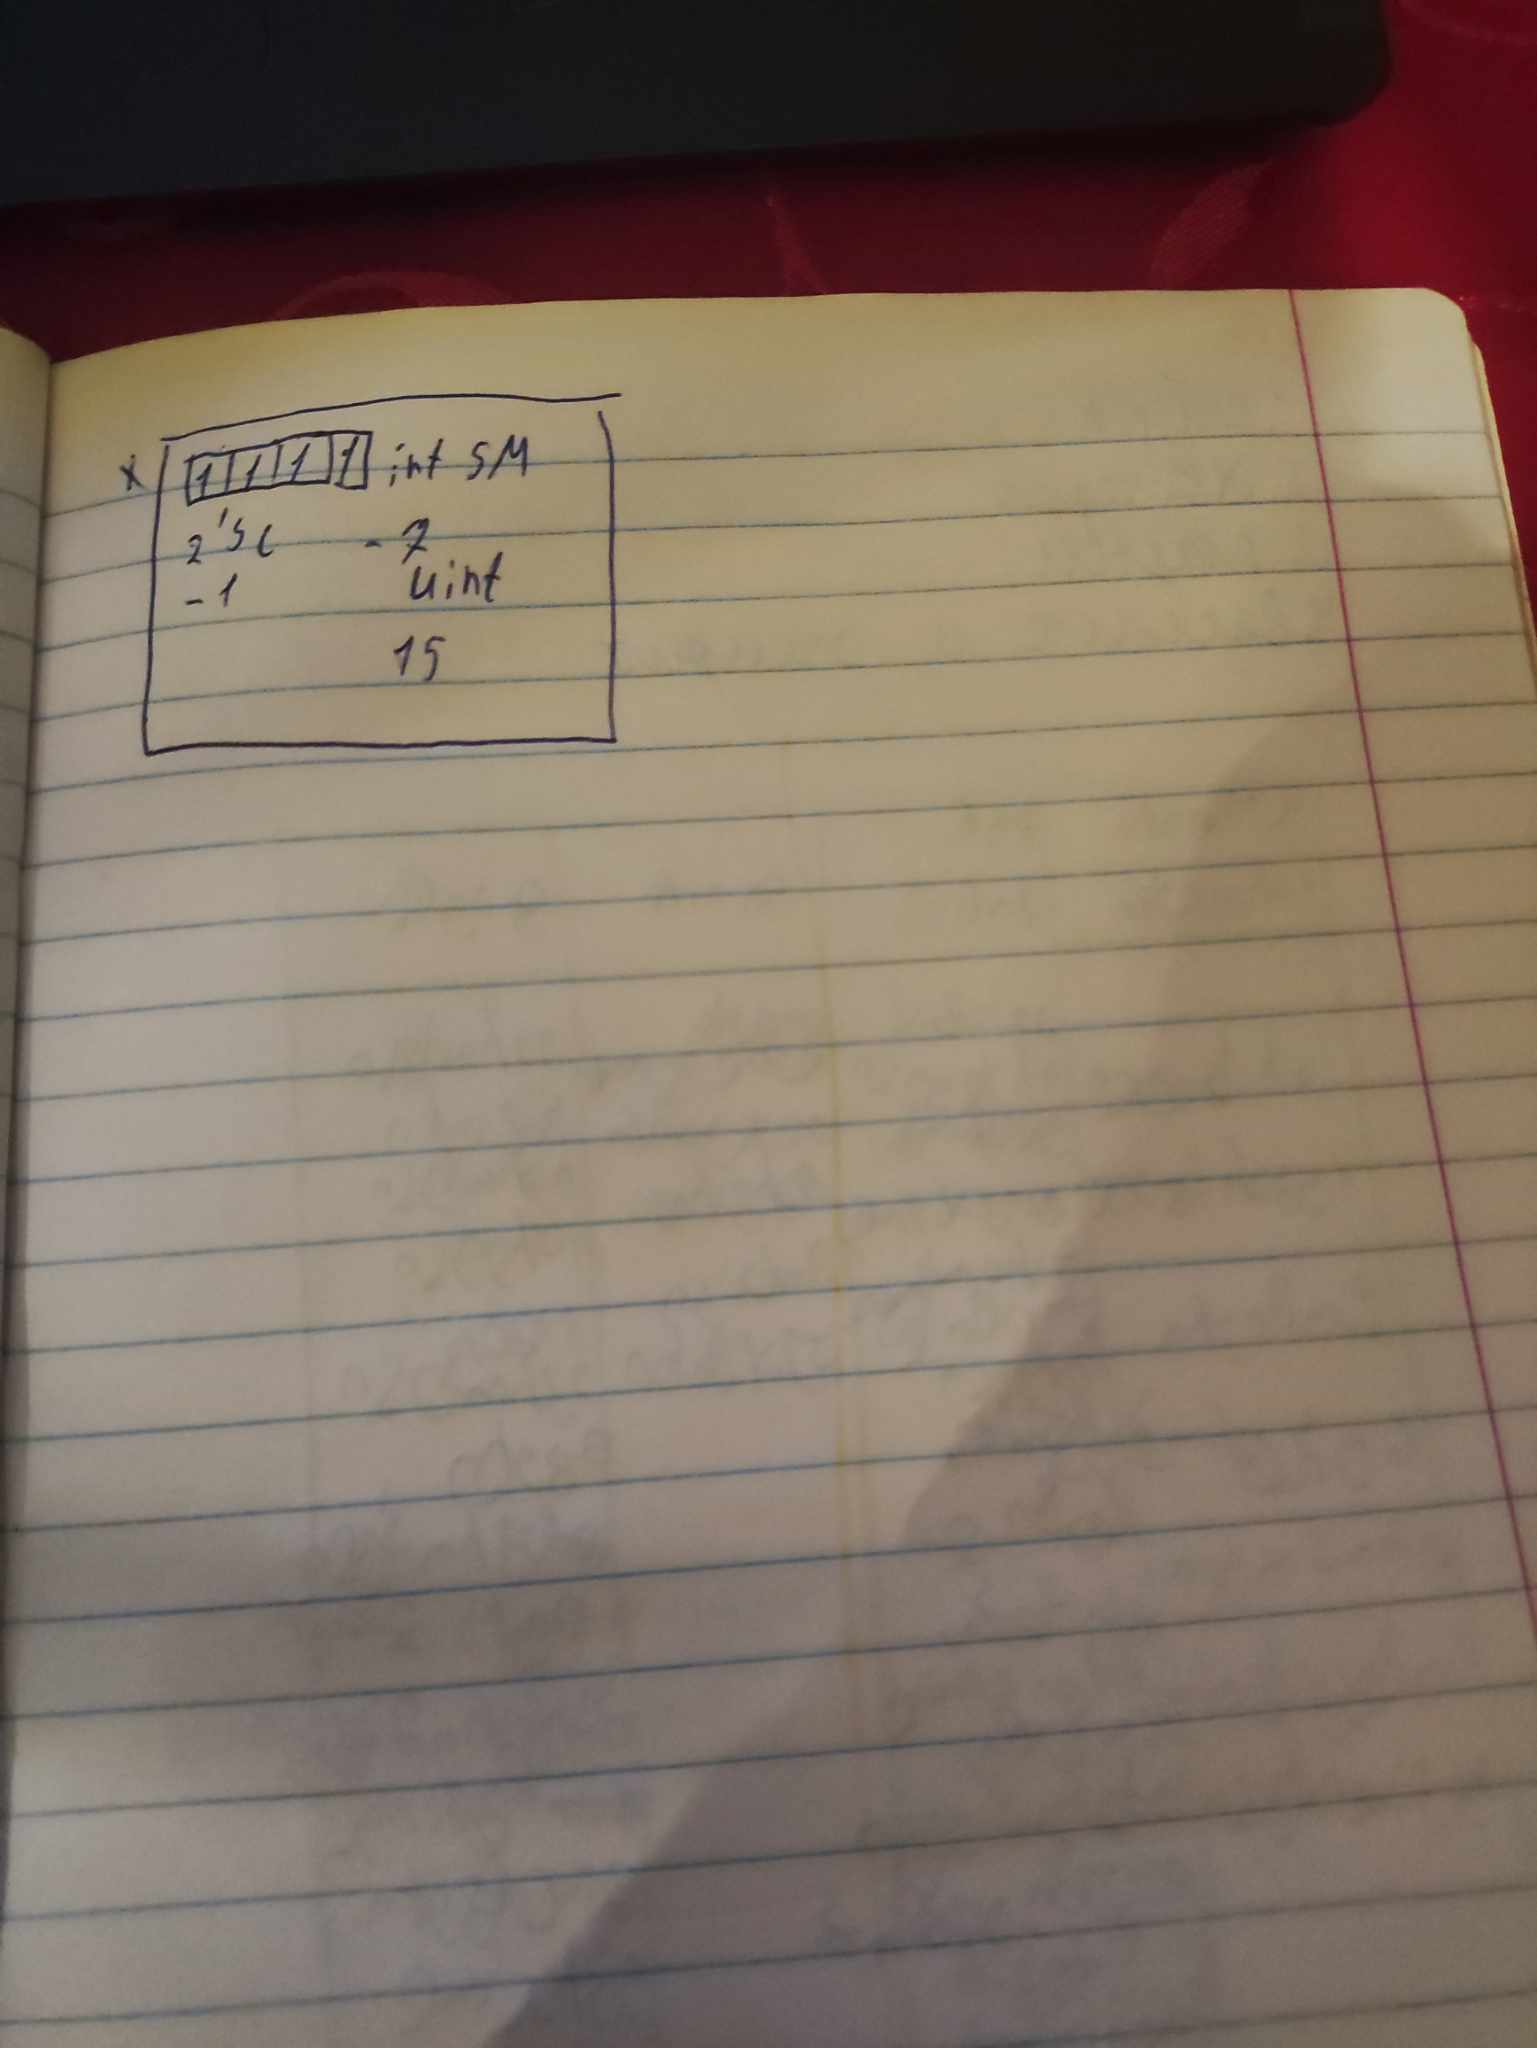 x 1 1 1 1 int SM
2'sc - 7
-1 uint
15